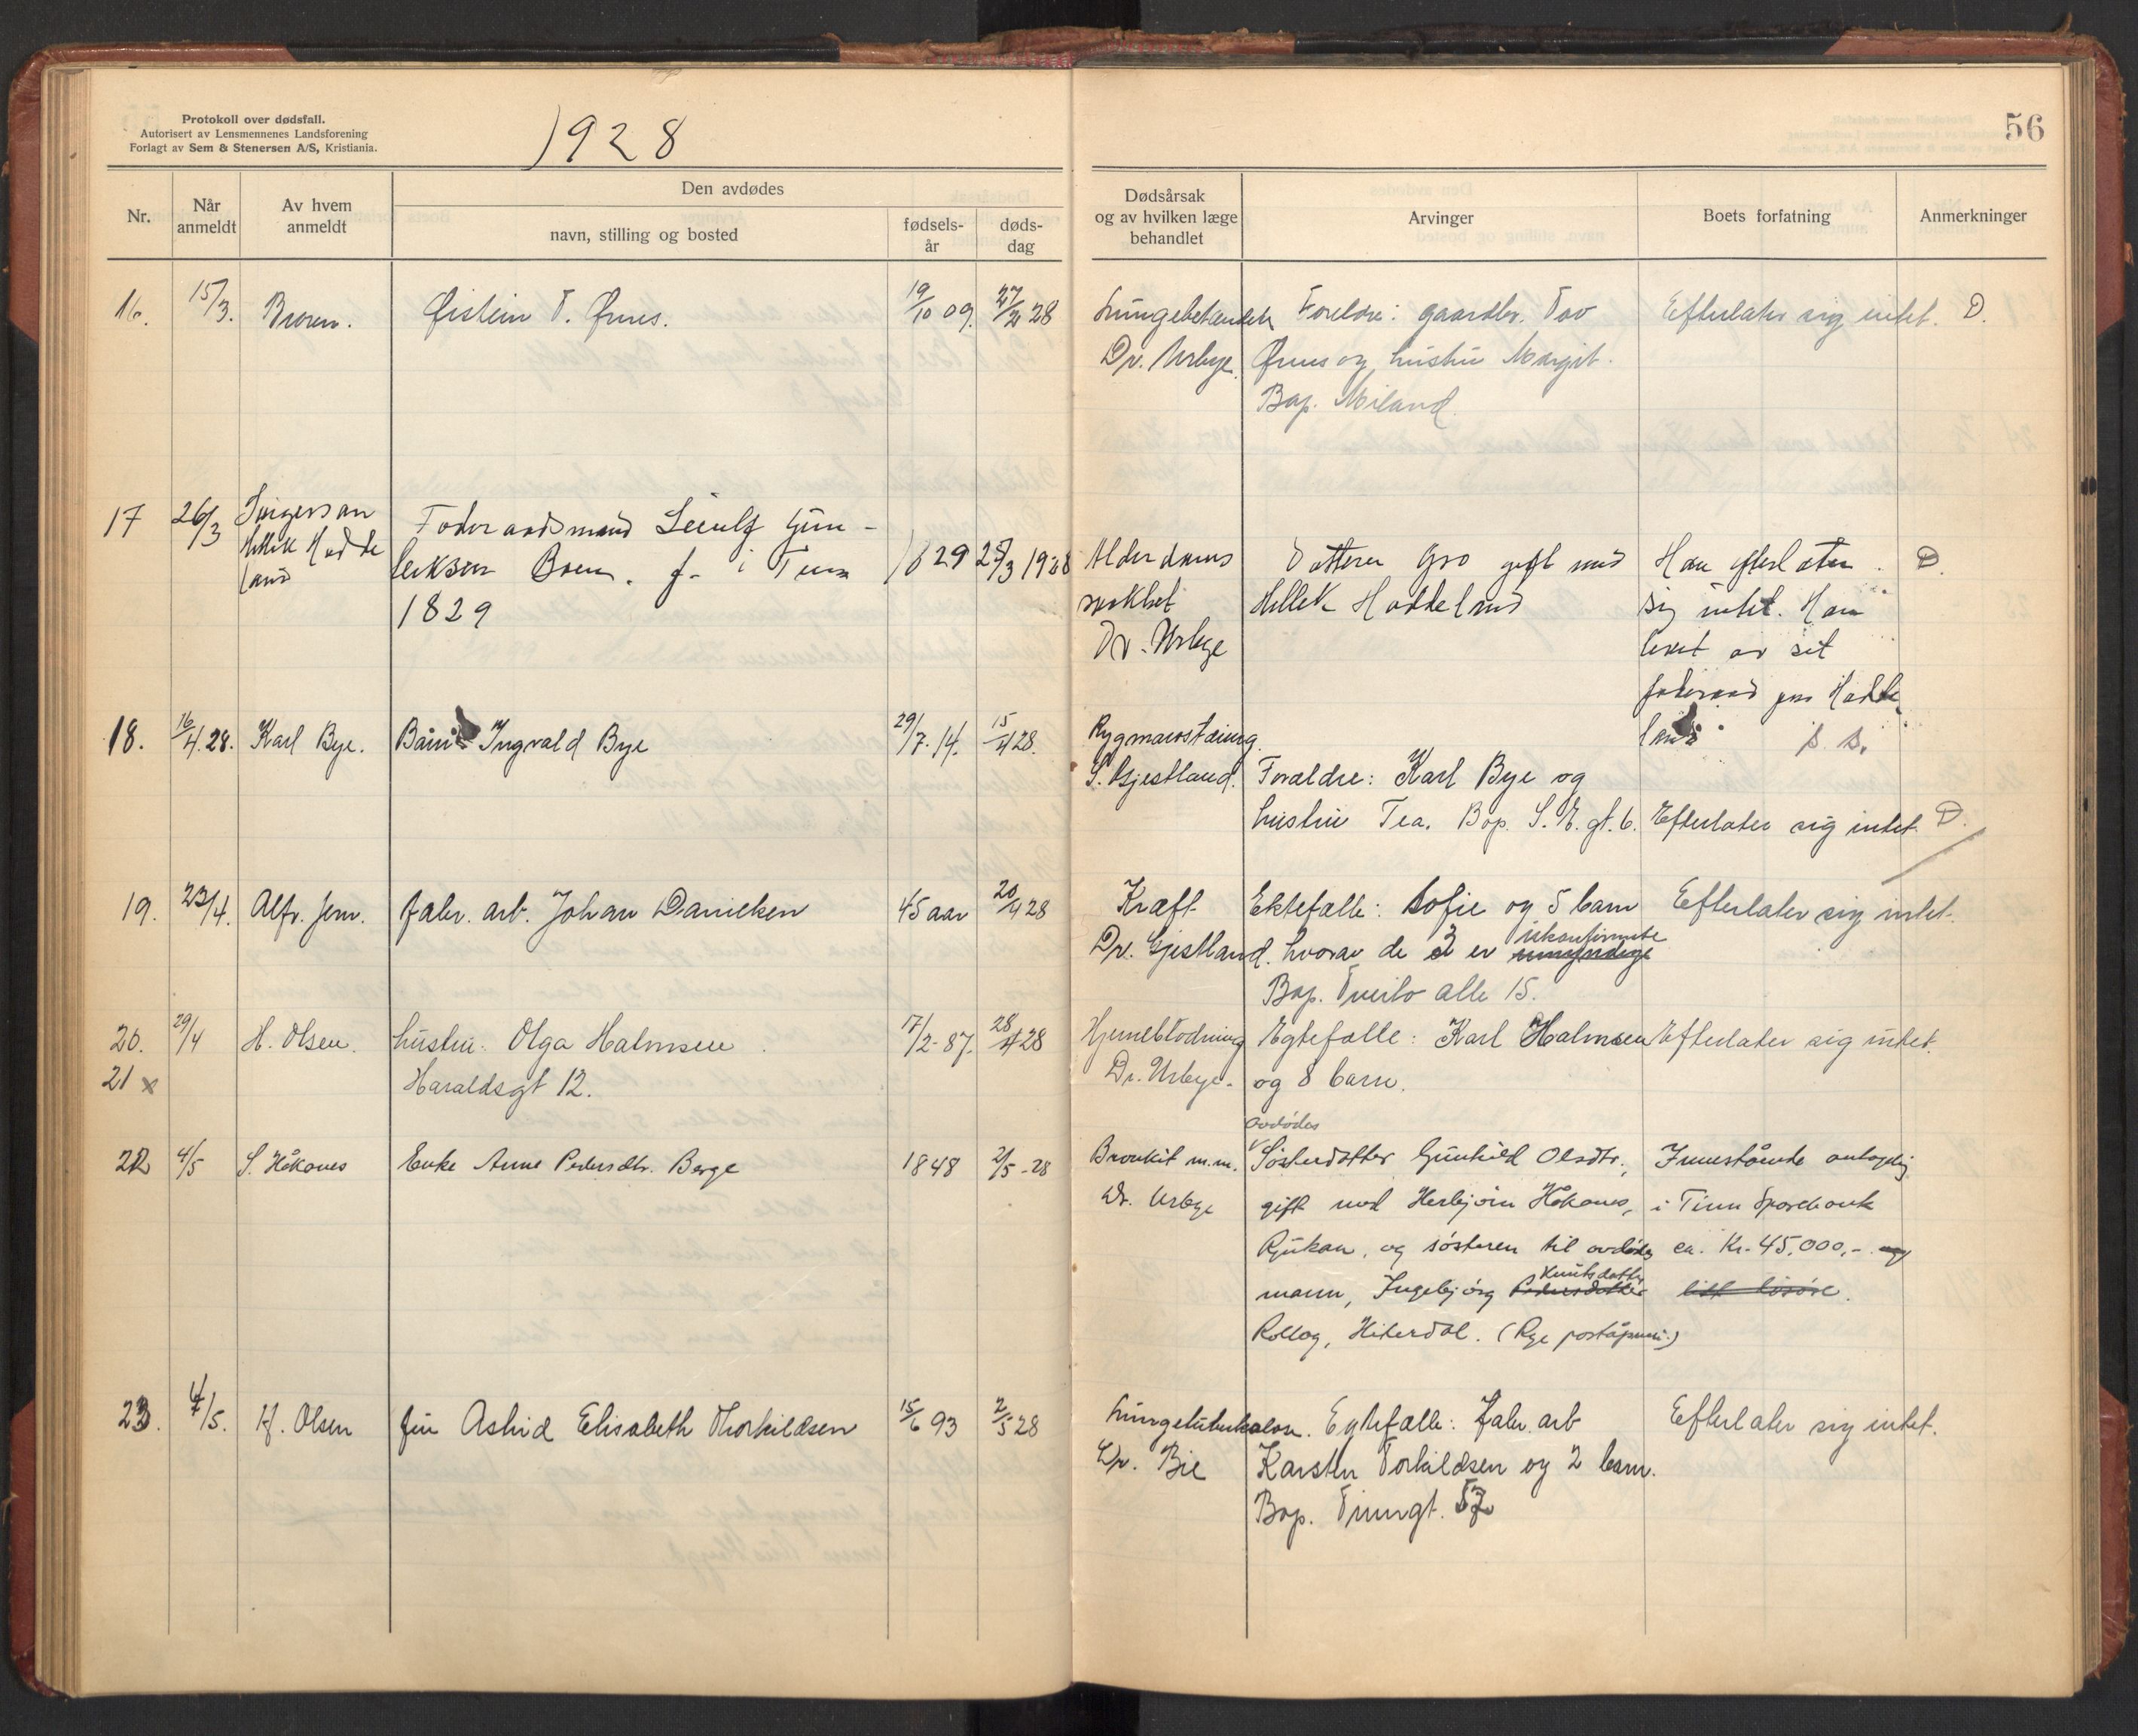 Protokoll over dødsfall.
Autorisert av Lensmennenes Landsforening
Forlagt av Sem & Stenersen A/S, Kristiania.
1928
56
Nr.
Når anmeldt
Av hvem anmeldt
Den avdødes
navn, stilling og bosted
fødsels-år
døds-dag
Dødsårsak og av hvilken læge behandlet
Arvinger
Boets forfatning
Anmerkninger
16. 15/3. Broren. Øistein T. Ørnes. 19/10 09. 27/2 28
Dr. Urbye.
Foreldre: gaardbr. Tov
Ørnes og hustru Margit.
Bop. Miland.
Efterlater sig intet. D.
17 26/3
Hellek Hadde
land
Foderaadsmand Leiulf Gun-
leiksen Boen. f. i Tinn
1829
1829 25/3 1928
Alderdoms
svakhet
Dr. Urbye
Datteren Gro gift med
Hellek Haddeland
Han efterlater
sig intet. Han
levet av sit
foderaad paa Hadde
land
D.
18. 16/4.28. Karl Bye. Barn Ingvald Bye 29/7.14. 15/4 28.
Rygmarvstæring.
S. Gjestland.
Forældre: Karl Bye og
hustru Tea. Bop. S. E. gt. 6.
Efterlater sig intet. D.
19. 23/4. Alfr. Jern. fabr. arb. Johan Danielsen 45 aar 20/4 28
Kræft
Dr. Gjestland.
Ektefælle: Sofie og 5 barn
hvorav de 3 er ukonfirmerte
Bop. Tveito alle 15.
Efterlater sig intet.
20. 29/4 H. Olsen. hustru: Olga Halmsen 17/2-87. 28/4 28
21 x Haraldsgt 12.
Hjerneblødning
Dr. Urbye.
Egtefælle: Karl Halmsen
og 8 barn.
Efterlater sig intet.
22 4/5 S. Håkanes Enke Anne Pedersdtr. Berge 1848 2/5-28
Bronkit m.m.
Dr. Urbye
avdødes
Søsterdatter Gunhild Olsdtr.,
gift med Herbjørn Håkanes,
Rjukan, og søsteren til avdødes
mann, Ingebjørg Knutsdatter Pedersdatter
Rollag, Hiterdal. (Rye poståpneri.)
Innestående antagelig
i Tinn Sparebank
ca. Kr. 45.000,- og
litt løsøre.
23. 4/5. H. Olsen fru Astrid Elisabeth Thorkildsen 15/6 93 2/5 28
Lungetuberkulose.
Dr. Bie
Egtefælle: fabr. arb
Karsten Torkildsen og 2 barn.
Bop. Tinngt. 57
Efterlater sig intet.